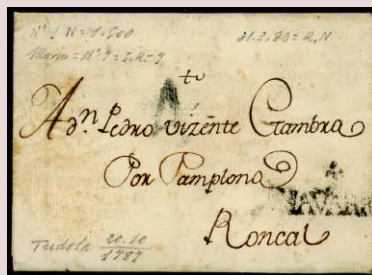 Nº 1 N=1.500
31.3.80=R.N
Nº 9 = I.R-9
A Dⁿ Pedro Vizente Gambra
Por Pamplona
NAVARRA
Roncal
Tudela 20.10
1787